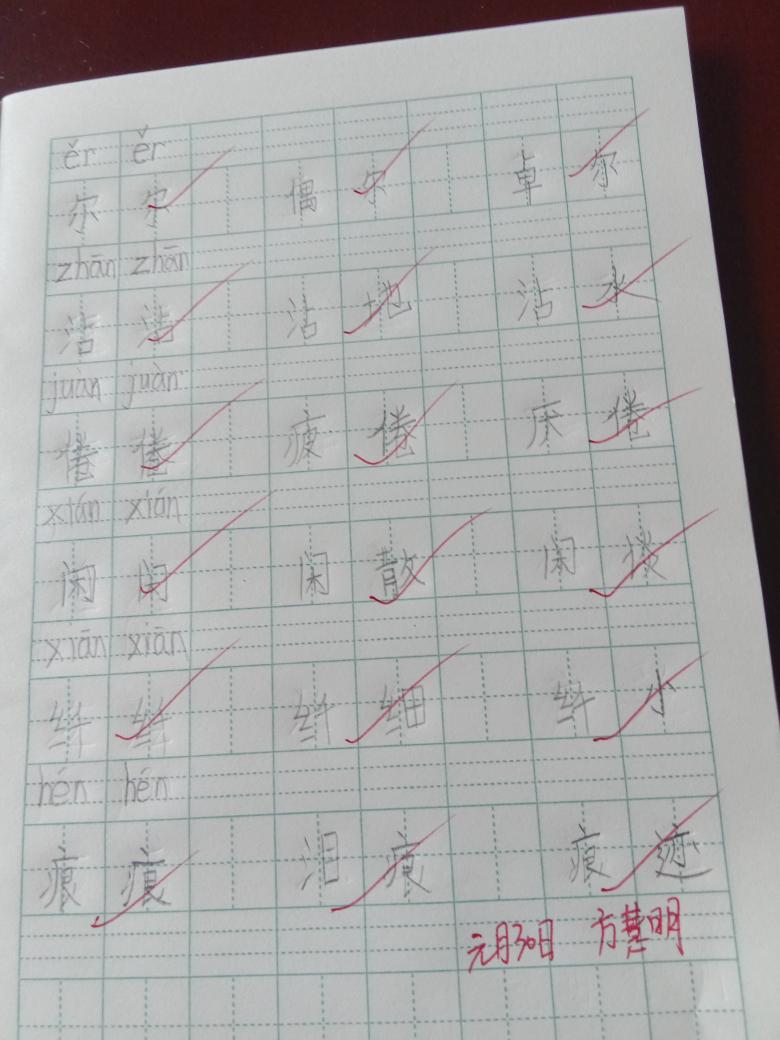 ěr ěr
尔 尔 偶 尔 卓 尔
zhān zhān
沾 沾 沾 地 沾 水
juàn juàn
倦 倦 疲 倦 厌 倦
xián xián
闲 闲 闲 散 闲
xiān xiān
纤 纤 纤 细 纤 小
hén hén
痕 痕 泪 痕 痕 迹
元月30日 方 明